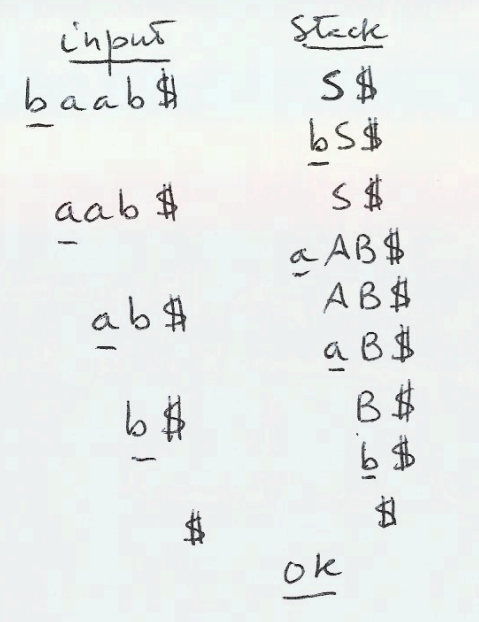 input Stack
baab$ S$
bS$
aab$ S$
aAB$
ab$ AB$
aB$
b$ B$
b$
$ $
ok